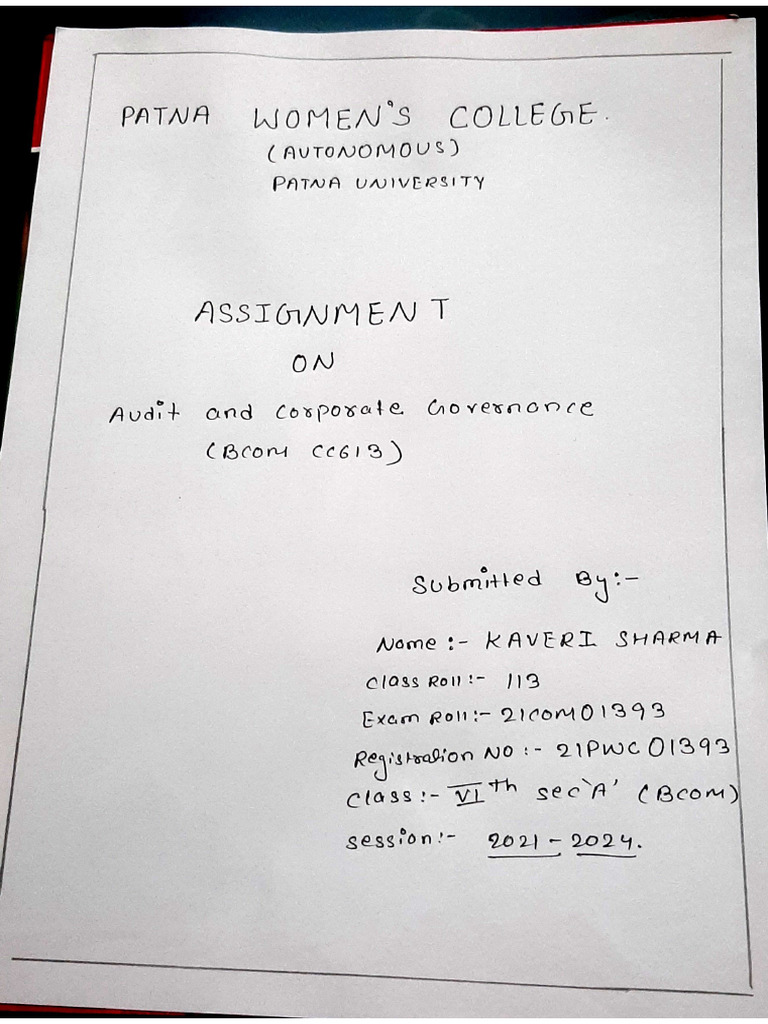 PATNA WOMEN'S COLLEGE.
(AUTONOMOUS)
PATNA UNIVERSITY
ASSIGNMENT
ON
Audit and corporate Governance
(BCOM CC613)
Submitted By:-
Name :- KAVERI SHARMA
Class Roll :- 113
Exam Roll:- 21COM01393
Registration No :- 21PWC01393
Class :- VIth sec 'A' (BCOM)
session:- 2021 - 2024.